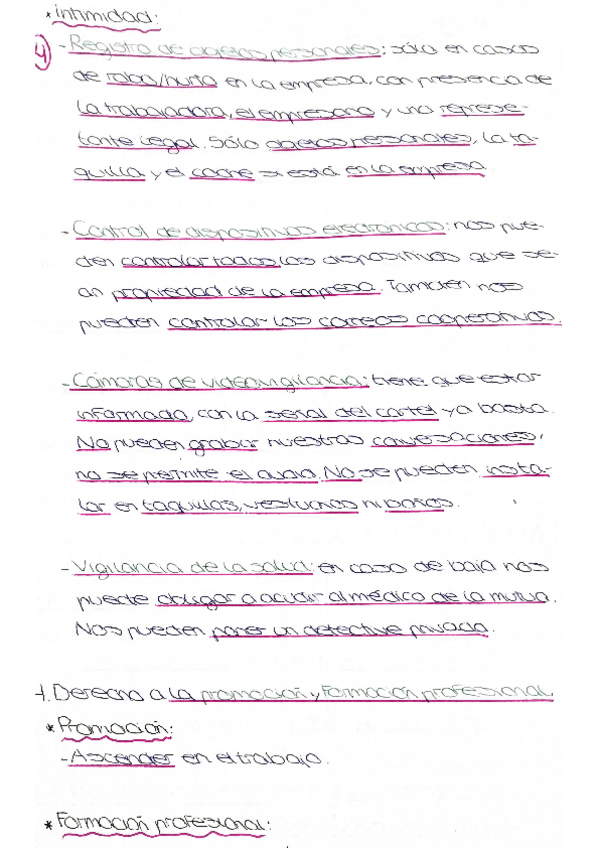 * intimidad:
4 - Registro de objetos personales: sólo en casos
de robo/hurto en la empresa, con presencia de
la trabajadora, el empresario y una represe-
tante legal. Sólo objetos personales, la ta-
quilla y el coche si está en la empresa
- Control de dispositivos electrónicos: nos pue-
den controlar todos los dispositivos que se-
an propiedad de la empresa. También nos
pueden controlar los correos cooperativos.
- Cámaras de videovigilancia: tiene que estar
informada, con la señal del cartel ya basta.
No pueden grabar nuestras conversaciones,
no se permite el audio. No se pueden insta-
lar en taquillas, vestuarios ni baños.
- Vigilancia de la salud: en caso de baja nos
puede obligar a acudir al médico de la mutua.
Nos pueden poner un detective privado.
1. Derecho a la promoción y formación profesional
* Promoción:
- Ascender en el trabajo.
* Formación profesional: